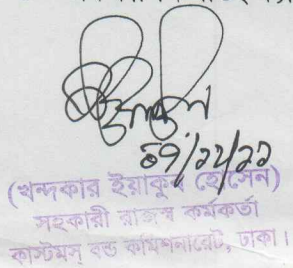 ০৭/১২/২১
(খন্দকার ইয়াকুব হোসেন)
সহকারী রাজস্ব কর্মকর্তা
কাস্টমস্ বন্ড কমিশনারেট, ঢাকা।